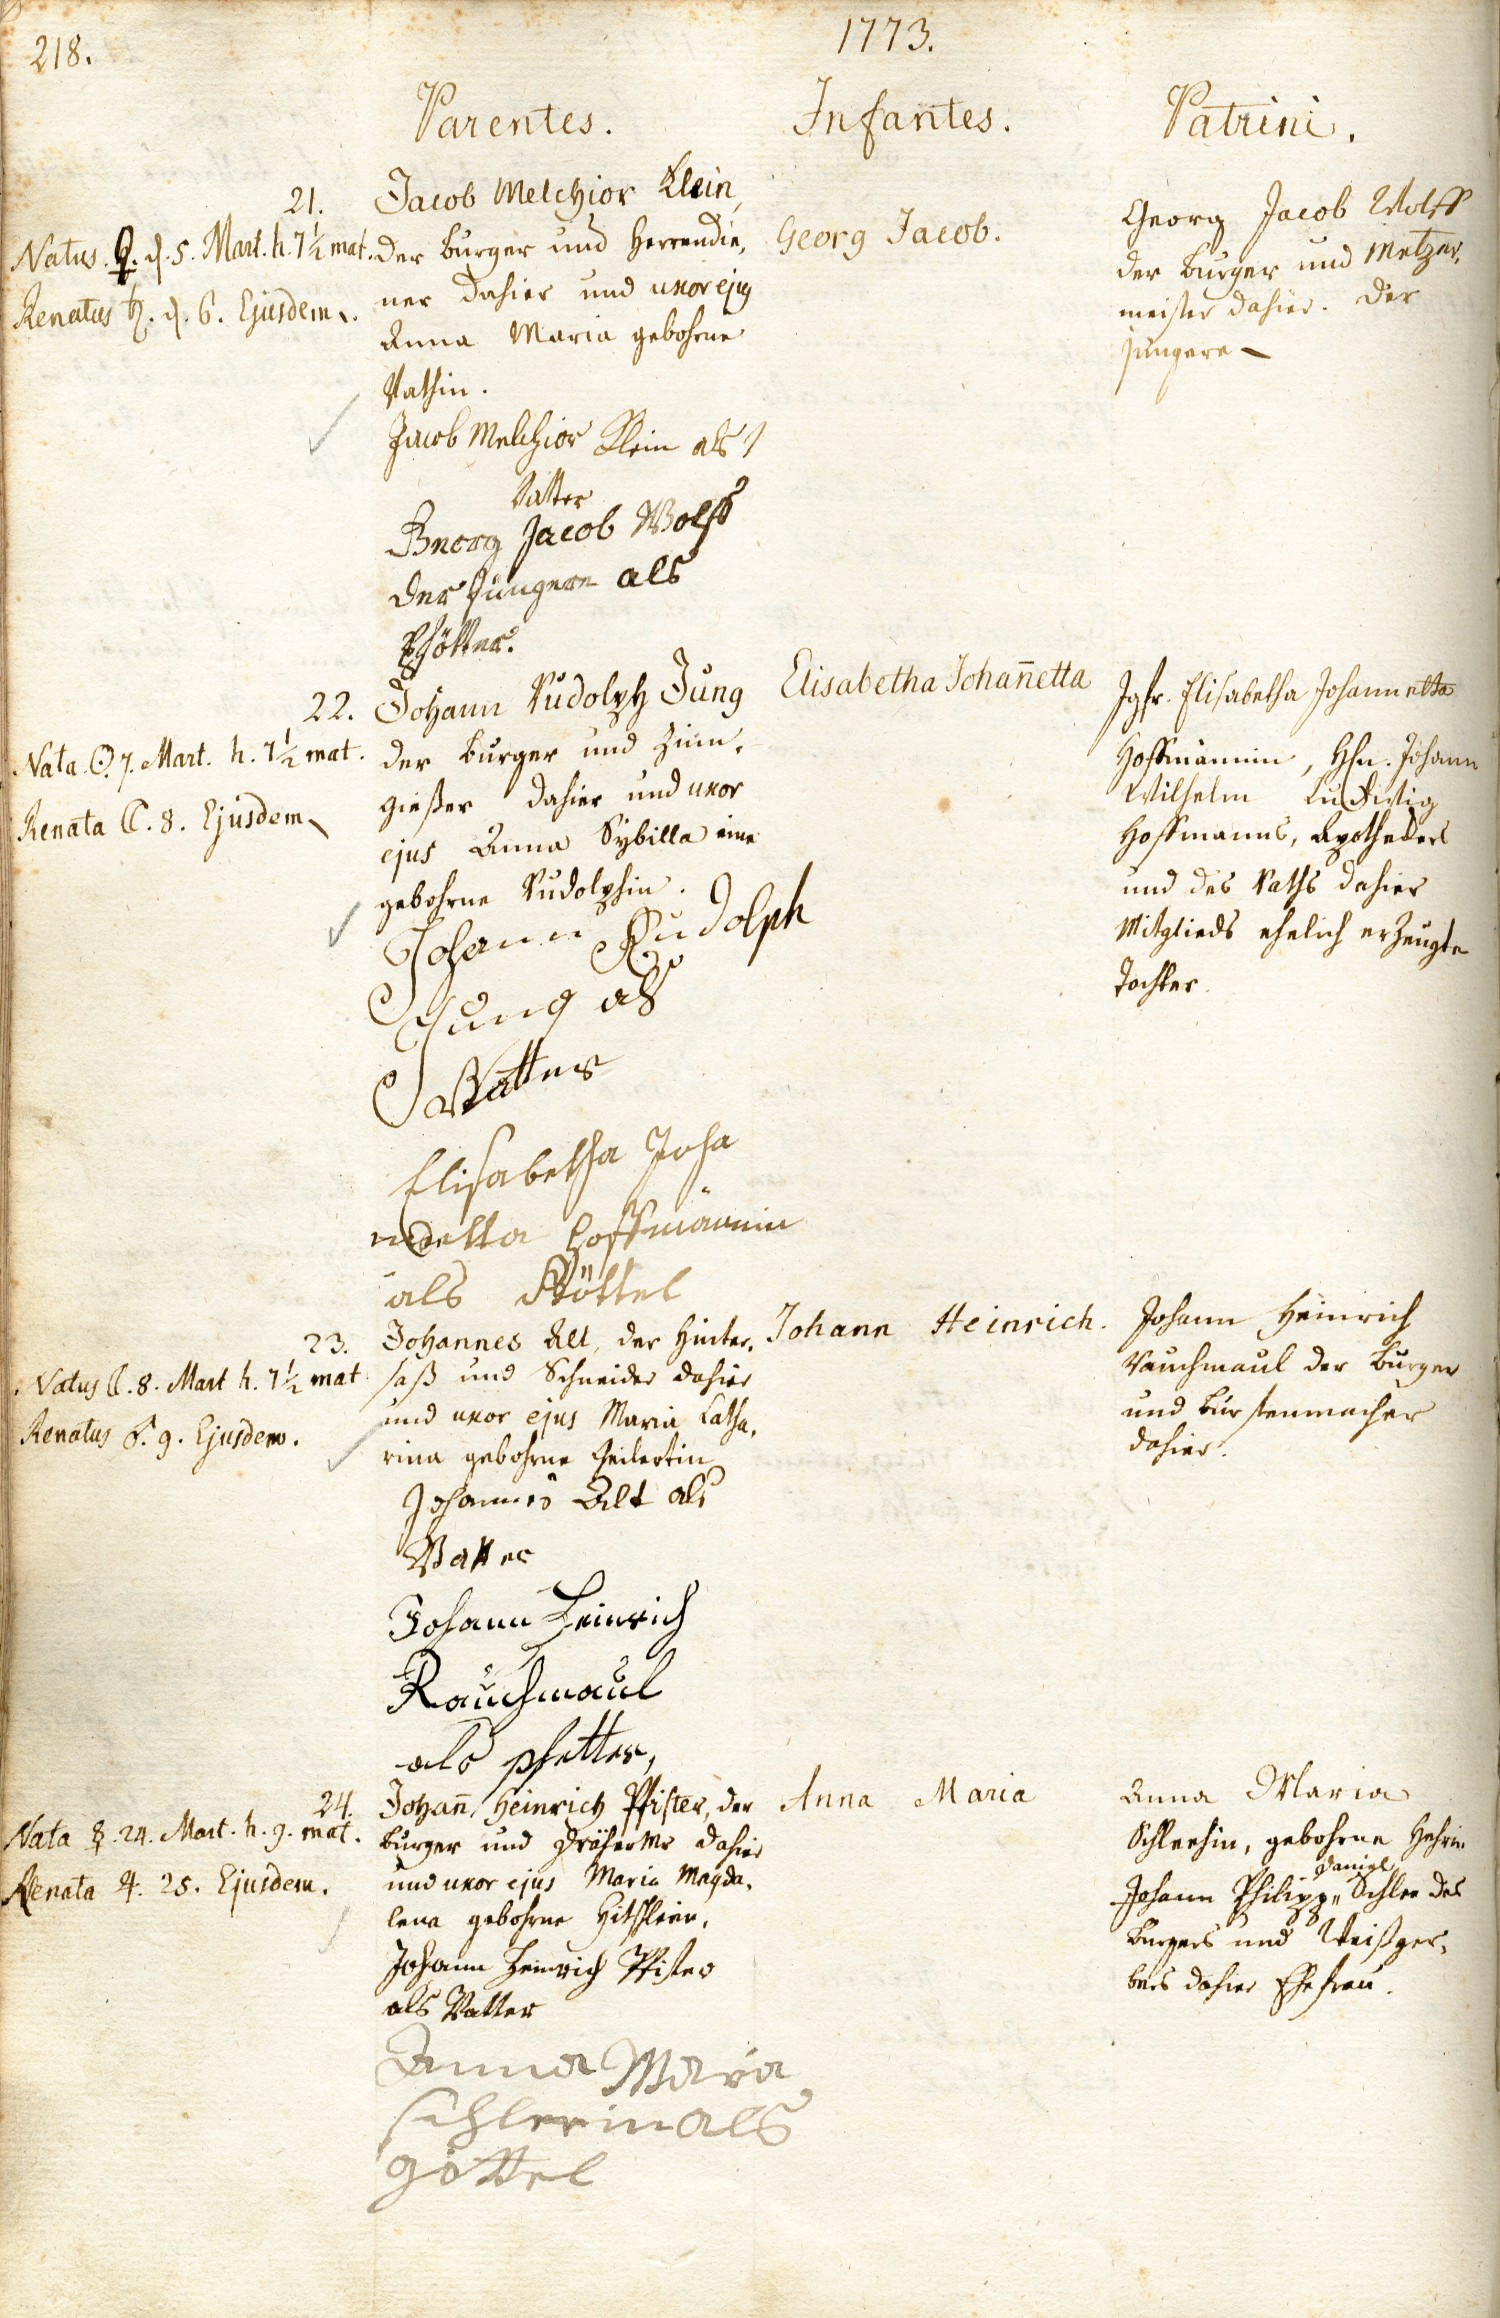 218.
1773.
Parentes.
Infantes.
Patrini.
21.
Natus ♀. d. 5. Mart. h. 7½ mat.
Renatus ♄. d. 6. Ejusdem.
Jacob Melchior Klein,
der burger und Herrendie-
ner dahier und uxor ejus
Anna Maria gebohrne
Rathin.
Jacob Melchior Klein als
Vatter
Georg Jacob Wolff
der Jüngere als
Pfötter.
Georg Jacob.
Georg Jacob Wolff
der burger und Metzger-
meister dahier. der
jüngere
22.
Nata ☉. 7. Mart. h. 7½ mat.
Renata ☾. 8. Ejusdem
Johann Rudolph Jung
der burger und Zinn-
gießer dahier und uxor
ejus Anna Sybilla eine
gebohrne Rudolphin.
Johann Rudolph
Jung als
Vatter
Elisabetha Joha
netta Hoffmännin
als Göttel
Elisabetha Johan̄etta
Jgfr. Elisabetha Johannetta
Hoffmännin, Hn. Johann
Wilhelm Ludwig
Hoffmanns, Apothekers
und des Raths dahier
Mitglieds ehelich erzeugte
Tochter.
23.
Natus ☾. 8. Mart h. 7½ mat
Renatus ♂. 9. Ejusdem.
Johannes Alt, der Hinter-
saß und Schneider dahier
und uxor ejus Maria Catha-
rina gebohrne
Johannes Alt als
Vatter
Johann Heinrich
Rauchmaul
als pfetter,
Johann Heinrich.
Johann Heinrich
Rauchmaul der burger
und bürstenmacher
dahier.
24.
Nata ☿. 24. Mart. h. 9. mat.
Renata ♃. 25. Ejusdem.
Johan̄ Heinrich Pfister, der
burger und dahier
und uxor ejus Maria Magda-
lena gebohrne
Johann Heinrich Pfister
als Vatter
Anna Maria
schleein als
göttel
Anna Maria
Anna Maria
Schleehin, gebohrne
Daniel
Johann Philipp Schlee des
burgers und Weißger-
bers dahier Ehefrau.